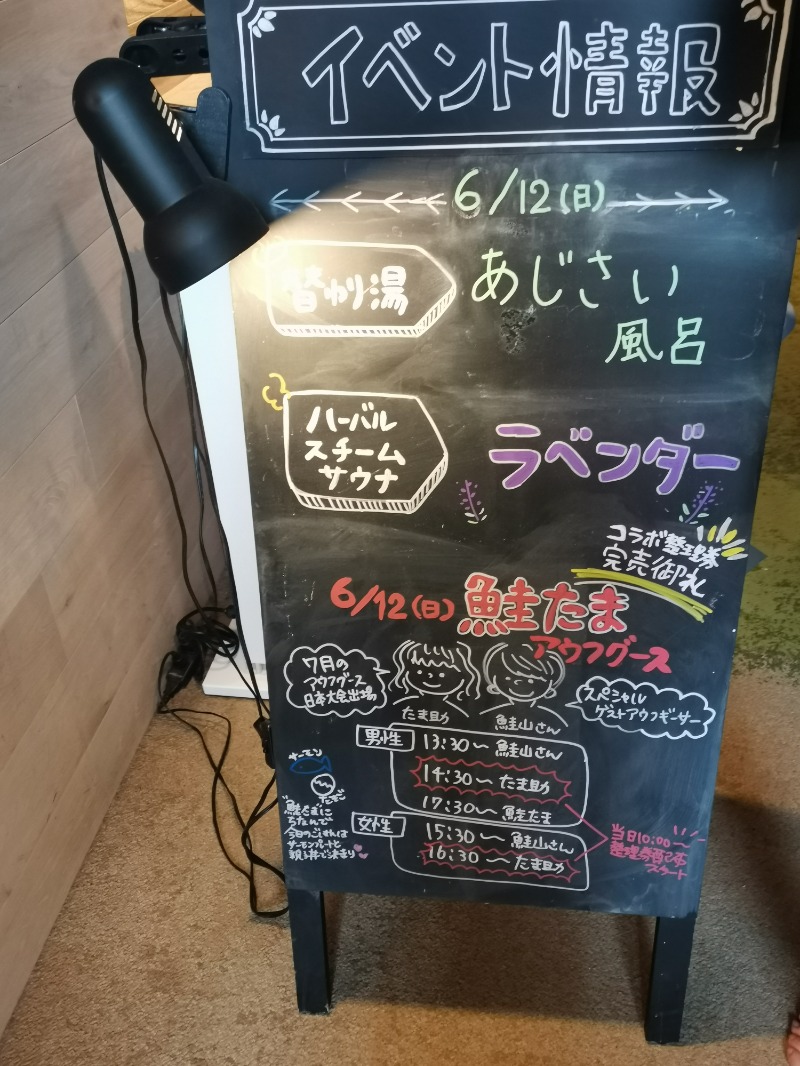 イベント情報
6/12(日)
替わり湯
あじさい
風呂
ハーバル
スチーム
サウナ
ラベンダー
コラボ整理券
完売御礼
6/12(日) 鮭たま
アウフグース
7月の
アウフグース
日本大会出場
スペシャル
ゲストアウフギーサー
たま助
鮭山さん
男性
13:30〜鮭山さん
14:30〜たま助
17:30〜鮭たま
女性
15:30〜鮭山さん
16:30〜たま助
当日10:00〜
整理券配布
スタート
サーモン
たまご
鮭たまに
ちなんで
今日のごはんは
サーモンプレートと
親子丼で決まり